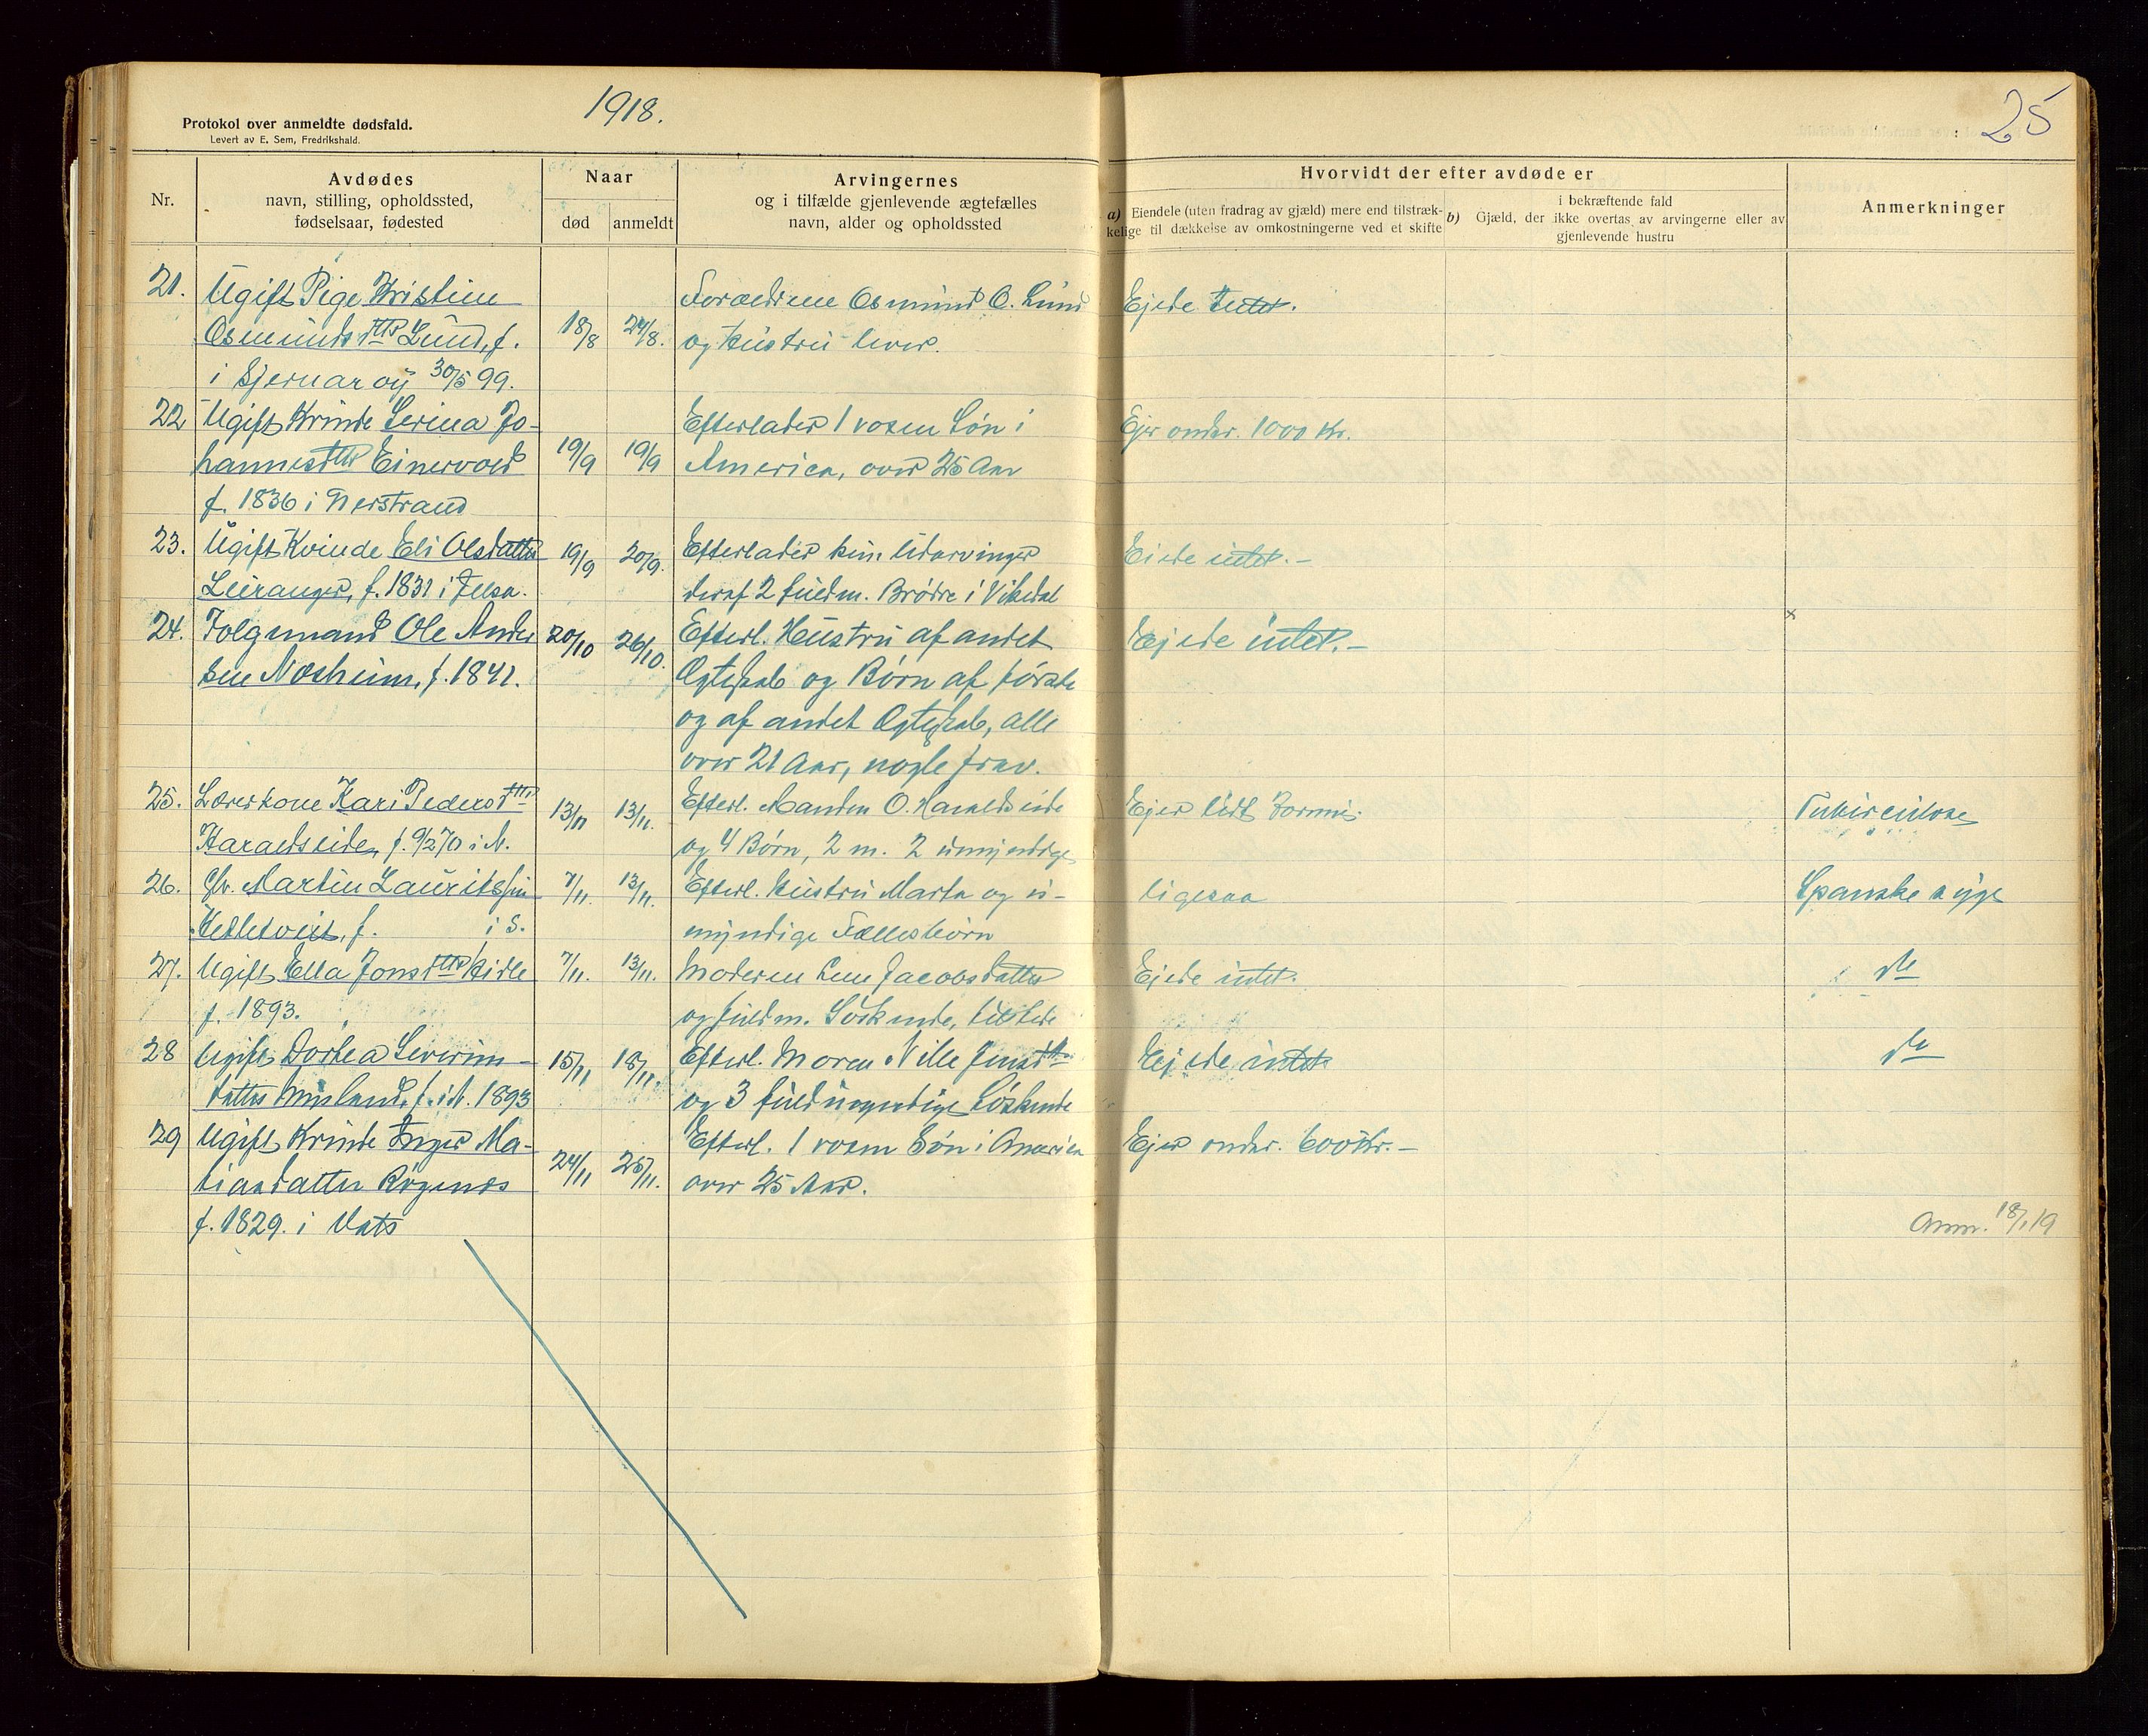 1918.
25
Protokol over anmeldte dødsfald.
Levert av E. Sem, Fredrikshald.
Nr.
Avdødes
navn, stilling, opholdssted,
fødselsaar, fødested
Naar
død
anmeldt
Arvingernes
og i tilfælde gjenlevende ægtefælles
navn, alder og opholdssted
Hvorvidt der efter avdøde er
a) Eiendele (uten fradrag av gjæld) mere end tilstræk-
kelige til dækkelse av omkostningerne ved et skifte
b) Gjæld, der i bekræftende fald
ikke overtas av arvingerne eller av
gjenlevende hustru
Anmerkninger
21. Ugift Pige Kristine
Osmundsdttr Lund, f.
i Sjernarøy 30/5 99.
18/8 24/8.
Forældrene Osmund O. Lund
og Hustru lever.
Ejede Intet.
22 Ugift Kvinde Serina Jo-
hannesdttr Einervold
f. 1836 i Nerstrand
19/9 19/9
Efterlader 1 voxen Søn i
America, over 25 Aar
Ejer omkr. 1000 Kr.
23. Ugift Kvinde Eli Olsdatter
Leiranger, f. 1831 i Jelsa.
19/9 20/9.
Efterlader kun Udarvinger
deraf 2 fuldm. Brødre i Vikedal
Eiede intet. –
24. Folgemand Ole Ander
sen Næsheim, f. 1841.
20/10 26/10.
Efterl. Hustru af andet
Ægteskab og Børn af første
og af andet Ægteskab, alle
over 21 Aar, nogle frav.
Ejede intet. –
x
25. Lærerkone Kari Pedersdttr
Haraldseide, f. 9/2 70 i N.
13/11 13/11.
Efterl. Manden O. Haraldseide
og 4 Børn, 2 m. 2 umyndige
Ejer lidt Formue.
Tuberculose
26. Gbr. Martin Lauritssen
Hetletveit, f. i S.
7/11. 13/11.
Efterl. Hustru Marta og u-
myndige Fællesbørn
ligesaa
Spanske syge
27. Ugift Ella Jonsdttr Hidle
f. 1893.
7/11. 13/11.
Moderen Lene Jacobsdatter
og fuldm. Søskende, tilstede
Ejede intet.
do
28 Ugift Dortea Severins-
datter Musland, f. i N. 1893
15/11 18/11.
Efterl. Moren Nille Jensdtr
og 3 fuldmyndige Søskende
Ejede intet
do
29 Ugift Kvinde Inger Ma-
tiasdatter Røgenes
f. 1829. i Vats
24/11 25/11.
Efterl. 1 voxen Søn i America
over 25 Aar.
Ejer omkr. 600 Kr. –
Anm. 18/1 19